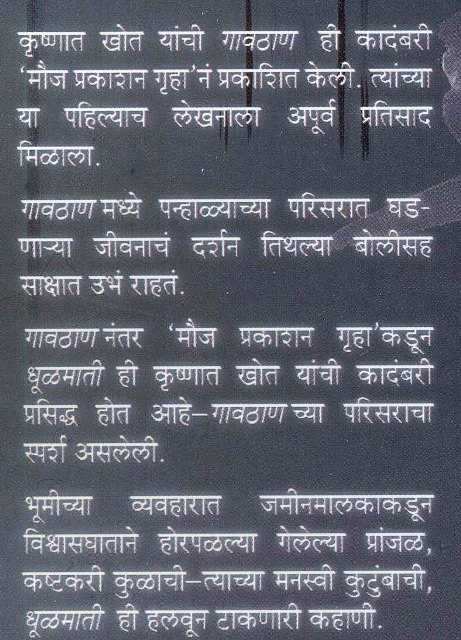 कृष्णात खोत यांची गावठाण ही कादंबरी
‘मौज प्रकाशन गृहा’नं प्रकाशित केली. त्यांच्या
या पहिल्याच लेखनाला अपूर्व प्रतिसाद
मिळाला.
गावठाण मध्ये पन्हाळ्याच्या परिसरात घड-
णाऱ्या जीवनाचं दर्शन तिथल्या बोलीसह
साक्षात उभं राहतं.
गावठाण नंतर ‘मौज प्रकाशन गृहा’कडून
धूळमाती ही कृष्णात खोत यांची कादंबरी
प्रसिद्ध होत आहे–गावठाण च्या परिसराचा
स्पर्श असलेली.
भूमीच्या व्यवहारात जमीनमालकाकडून
विश्वासघाताने होरपळल्या गेलेल्या प्रांजळ,
कष्टकरी कुळाची–त्याच्या मनस्वी कुटुंबाची,
धूळमाती ही हलवून टाकणारी कहाणी.